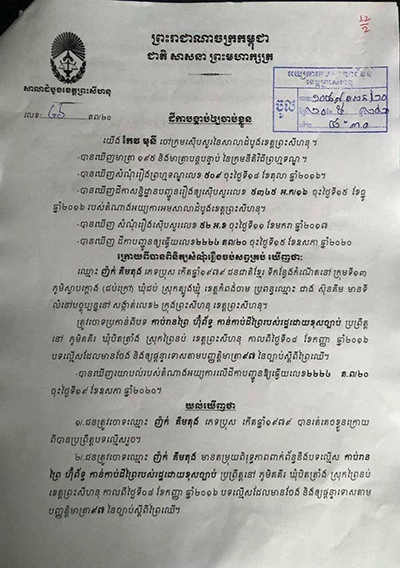 ព្រះរាជាណាចក្រកម្ពុជា
ជាតិ សាសនា ព្រះមហាក្សត្រ
សាលាដំបូងខេត្តព្រះសីហនុ
លេខ: ៤៥ ត/២០
ចូល
ដីកាបង្គាប់ឲ្យចាប់ខ្លួន
យើង កែវ មុនី ចៅក្រមស៊ើបសួរនៃសាលាដំបូងខេត្តព្រះសីហនុ។
-បានឃើញមាត្រា ១៩៥ និងមាត្របន្តបន្ទាប់ នៃក្រមនីតិវិធីព្រហ្មទណ្ឌ ។
-បានឃើញ សំណុំរឿងព្រហ្មទណ្ឌលេខ ៥០៩ ចុះថ្ងៃទី១៨ ខែតុលា ឆ្នាំ២០១៦។
-បានឃើញដីកាសន្និដ្ឋានបញ្ជូនរឿងឲ្យស៊ើបសួរលេខ ៥៣៤៥ អ.ក/១៦ ចុះថ្ងៃទី១៥ ខែធ្នូ
ឆ្នាំ២០១៦ របស់តំណាងអយ្យការអមសាលាដំបូងខេត្តព្រះសីហនុ។
-បានឃើញ សំណុំរឿងស៊ើបសួរលេខ ៥២ អ.ខ ចុះថ្ងៃទី១១ ខែមករា ឆ្នាំ២០១៧
-បានឃើញ ដីកាបញ្ជូនឱ្យធ្វើយល់លេខ២២២៤ ត៣/២០ ចុះថ្ងៃទី១៥ ខែឧសភា ឆ្នាំ២០២០
ក្រោយពីបានពិនិត្យសំណុំរឿងចប់សព្វគ្រប់ ឃើញថា:
ឈ្មោះ ញ៉ក់ គឹមតុង ភេទប្រុស កើតឆ្នាំ១៩៧៩ ជនជាតិខ្មែរ ទីកន្លែងកំណើតនៅ ក្រុមទី១៣
ភូមិស្វាបក្តោង (ដប់ក្រៅ) ឃុំជប់ ស្រុកត្បូងឃ្មុំ ខេត្តកំពង់ចាម ប្រពន្ធឈ្មោះ ជាង ស៊ុនគីម មានទី
លំនៅបច្ចុប្បន្ននៅ សង្កាត់លេខ២ ក្រុងព្រះសីហនុ ខេត្តព្រះសីហនុ។
ត្រូវចោទប្រកាន់ពីបទ កាប់រានព្រៃ ហ៊ុំព័ទ្ធ កាន់កាប់ដីព្រៃរបស់រដ្ឋដោយខុសច្បាប់ ប្រព្រឹត្ត
នៅ ភូមិគគីរ ឃុំបិតត្រាំង ស្រុកព្រៃនប់ ខេត្តព្រះសីហនុ កាលពីថ្ងៃទី០៨ ខែកញ្ញា ឆ្នាំ២០១៦
បទល្មើសដែលមានចែង និងឲ្យផ្តន្ទាទោសតាមបញ្ញត្តិមាត្រា៩៧ នៃច្បាប់ស្តីពីព្រៃឈើ។
-បានឃើញយោបល់របស់តំណាងអយ្យការលើដីកាបញ្ជូនឱ្យធ្វើយល់លេខ២២២៤ ត.៣/២០
ចុះថ្ងៃទី១៩ ខែឧសភា ឆ្នាំ២០២០។
យល់ឃើញថា
១/.ជនត្រូវចោទឈ្មោះ ញ៉ក់ គឹមតុង ភេទប្រុស កើតឆ្នាំ១៩៧៩ បានរត់គេចខ្លួនក្រោយ
ពីបានប្រព្រឹត្តបទល្មើសរួច។
២/.ជនត្រូវចោទឈ្មោះ ញ៉ក់ គឹមតុង មានតម្រុយពិរុទ្ធភាពពាក់ព័ន្ធនឹងបទល្មើស កាប់រាន
ព្រៃ ហ៊ុំព័ទ្ធ កាន់កាប់ដីព្រៃរបស់រដ្ឋដោយខុសច្បាប់ ប្រព្រឹត្តនៅ ភូមិគគីរ ឃុំបិតត្រាំង ស្រុកព្រៃនប់
ខេត្តព្រះសីហនុ កាលពីថ្ងៃទី០៨ ខែកញ្ញា ឆ្នាំ២០១៦ បទល្មើសដែលមានចែង និងឲ្យផ្តន្ទាទោសតាម
បញ្ញត្តិមាត្រា៩៧ នៃច្បាប់ស្តីពីព្រៃឈើ។